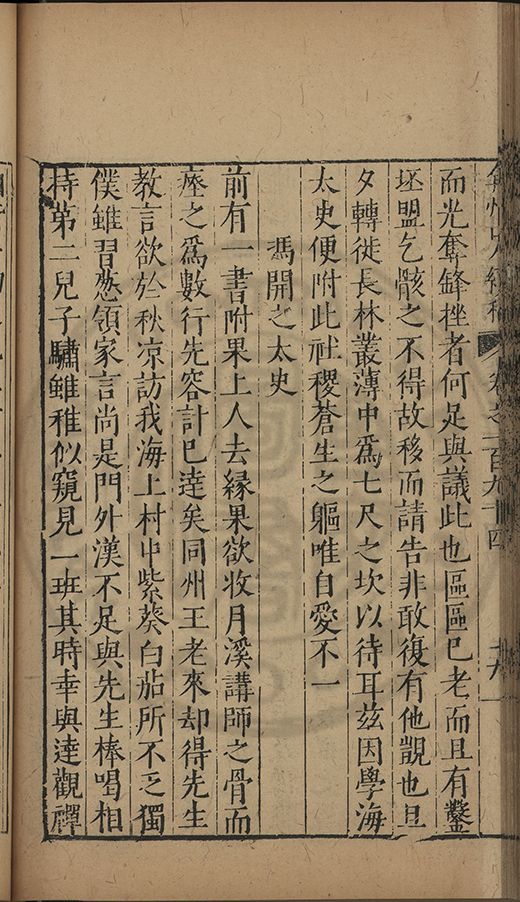 弇州山人續稿 卷之一百九十四 十九
而光奪鋒挫者何足與議此也區區已老而且有鑿
坯盟乞骸之不得故移而請告非敢復有他覬也旦
夕轉徙長林叢薄中爲七尺之坎以待耳茲因學海
太史便附此社稷蒼生之軀唯自愛不一
馮開之太史
前有一書附果上人去緣果欲收月溪講師之骨而
瘞之爲數行先容計已達矣同州王老來却得先生
教言欲於秋凉訪我海上村中紫葵白茄所不乏獨
僕雖習葱領家言尚是門外漢不足與先生棒喝相
持第二兒子驌雖稚似窺見一班其時幸與達觀禪